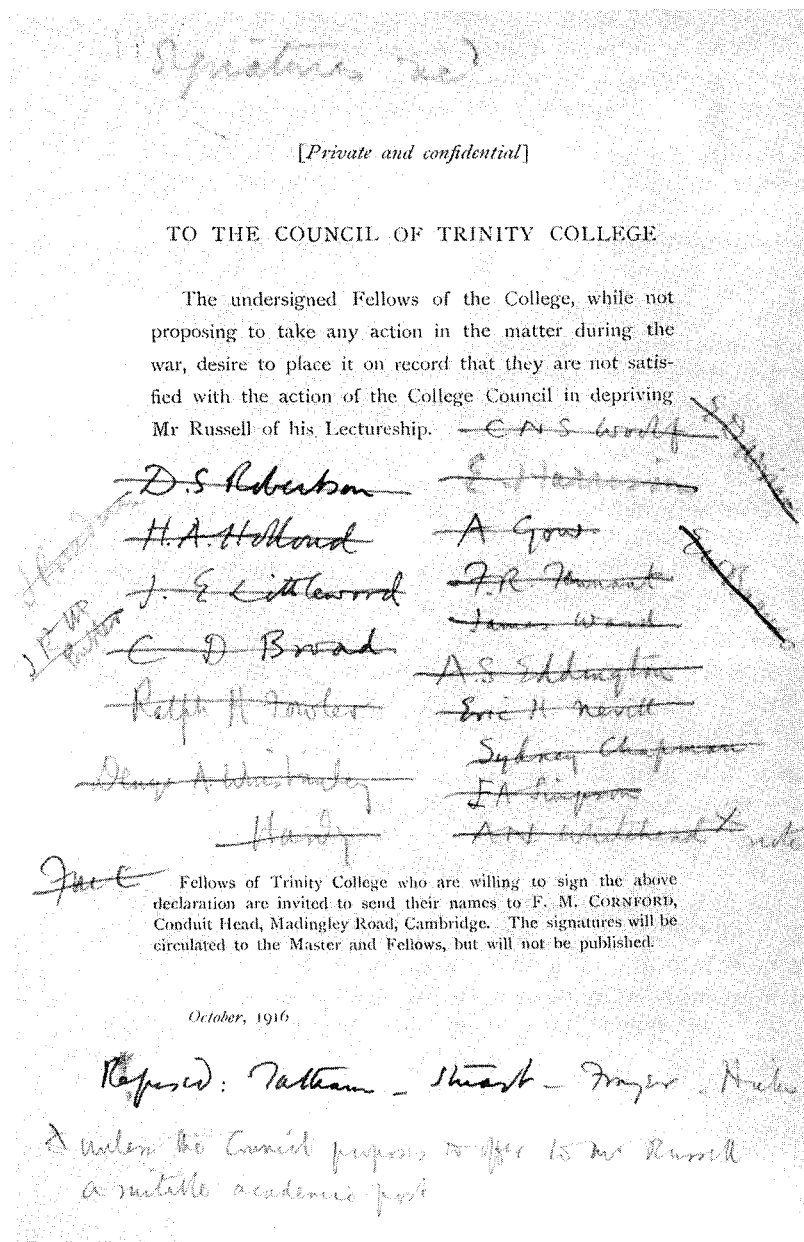 Signatures rec'd
[Private and confidential]
TO THE COUNCIL OF TRINITY COLLEGE
The undersigned Fellows of the College, while not
proposing to take any action in the matter during the
war, desire to place it on record that they are not satis-
fied with the action of the College Council in depriving
Mr Russell of his Lectureship.
C N S Woolf
D.S Robertson
E Harrison
H.A. Hollond
A Gow
J. E Littlewood
F.R. Tennant
James Ward
C D Broad
A S Eddington
Ralph H Fowler
Eric H Nevill
Sydney Chapman
Denys A Winstanley
F A Simpson
Hardy
A N Whitehead X note
F M C
Fellows of Trinity College who are willing to sign the above
declaration are invited to send their names to F. M. CORNFORD,
Conduit Head, Madingley Road, Cambridge. The signatures will be
circulated to the Master and Fellows, but will not be published.
October, 1916
Refused: Tatham – Stuart – Frazer –
X unless the Council proposes to offer to Mr Russell
a suitable academic post